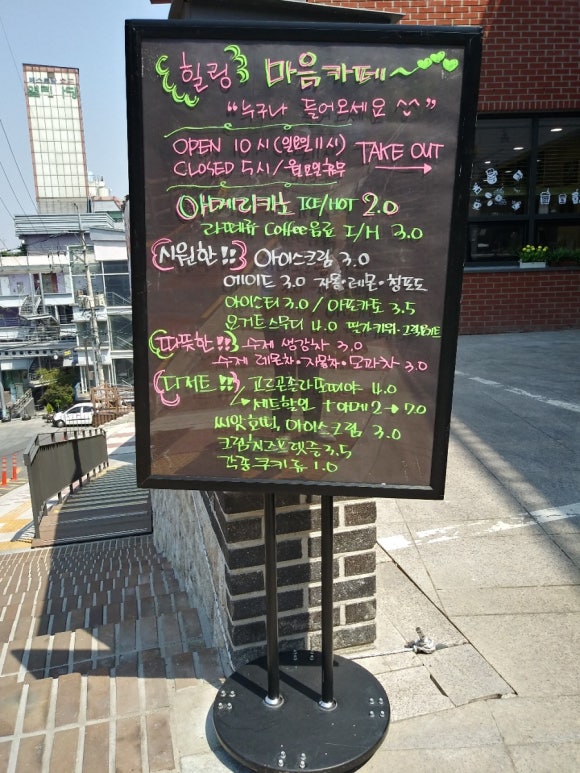 힐링 마음카페~
"누구나 들어오세요 ^^"
OPEN 10시 (일요일 11시)
CLOSED 5시/월요일 휴무
TAKE OUT
아메리카노 ICE/HOT 2.0
라떼류 Coffee음료 I/H 3.0
시원한!! 아이스크림 3.0
에이드 3.0 자몽·레몬·청포도
아이스티 3.0 / 아포카토 3.5
요거트스무디 4.0 딸기·키위·그린요거트
따뜻한!! 수제 생강차 3.0
수제 레몬차·자몽차·모과차 3.0
디저트!! 고르곤졸라또띠아 4.0
세트할인 +아메2→7.0
씨앗호떡, 아이스크림 3.0
크림치즈프렛즐 3.5
각종쿠키류 1.0